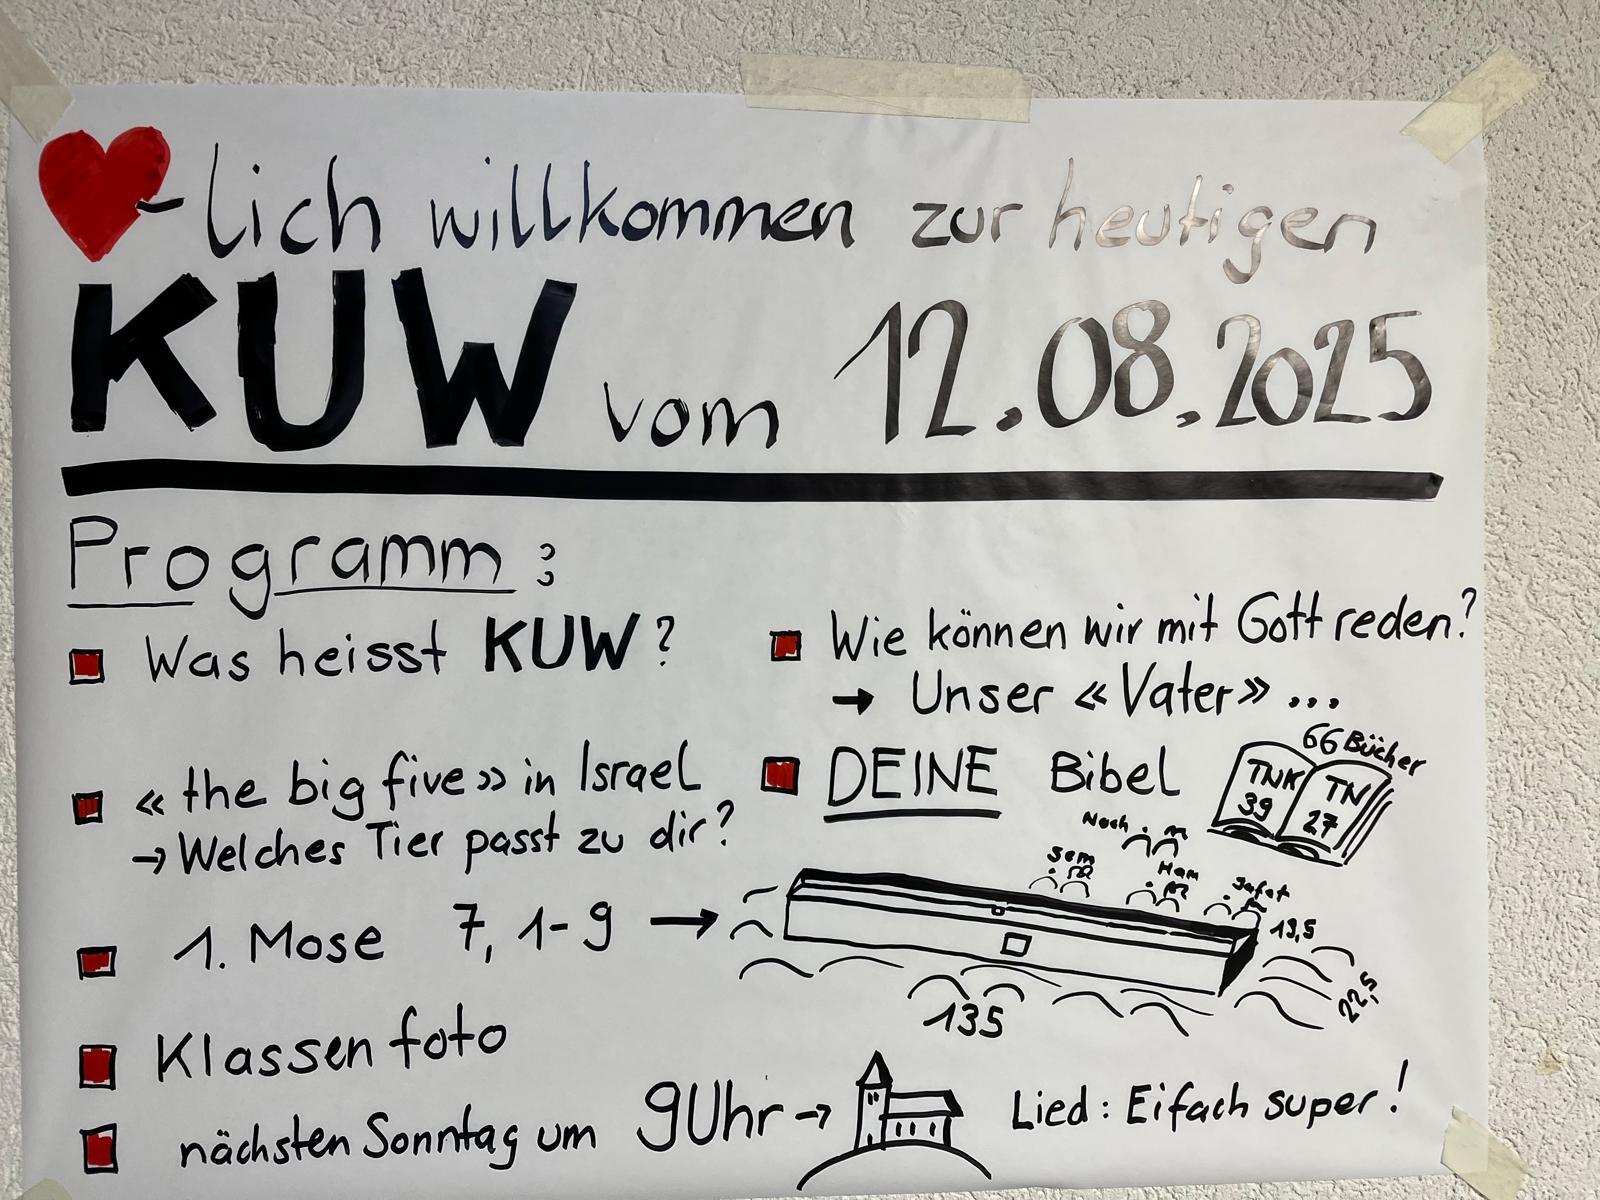 -lich willkommen zur heutigen
KUW vom 12.08.2025
Programm:
Was heisst KUW?
«the big five» in Israel
→ Welches Tier passt zu dir?
1. Mose 7, 1-9 →
Klassenfoto
nächsten Sonntag um 9Uhr →
Wie können wir mit Gott reden?
→ Unser «Vater» ...
DEINE Bibel
66 Bücher
TNK
39
TN
27
Noah
Sem
Ham
Jafet
13,5
22,5
135
Lied: Eifach super!